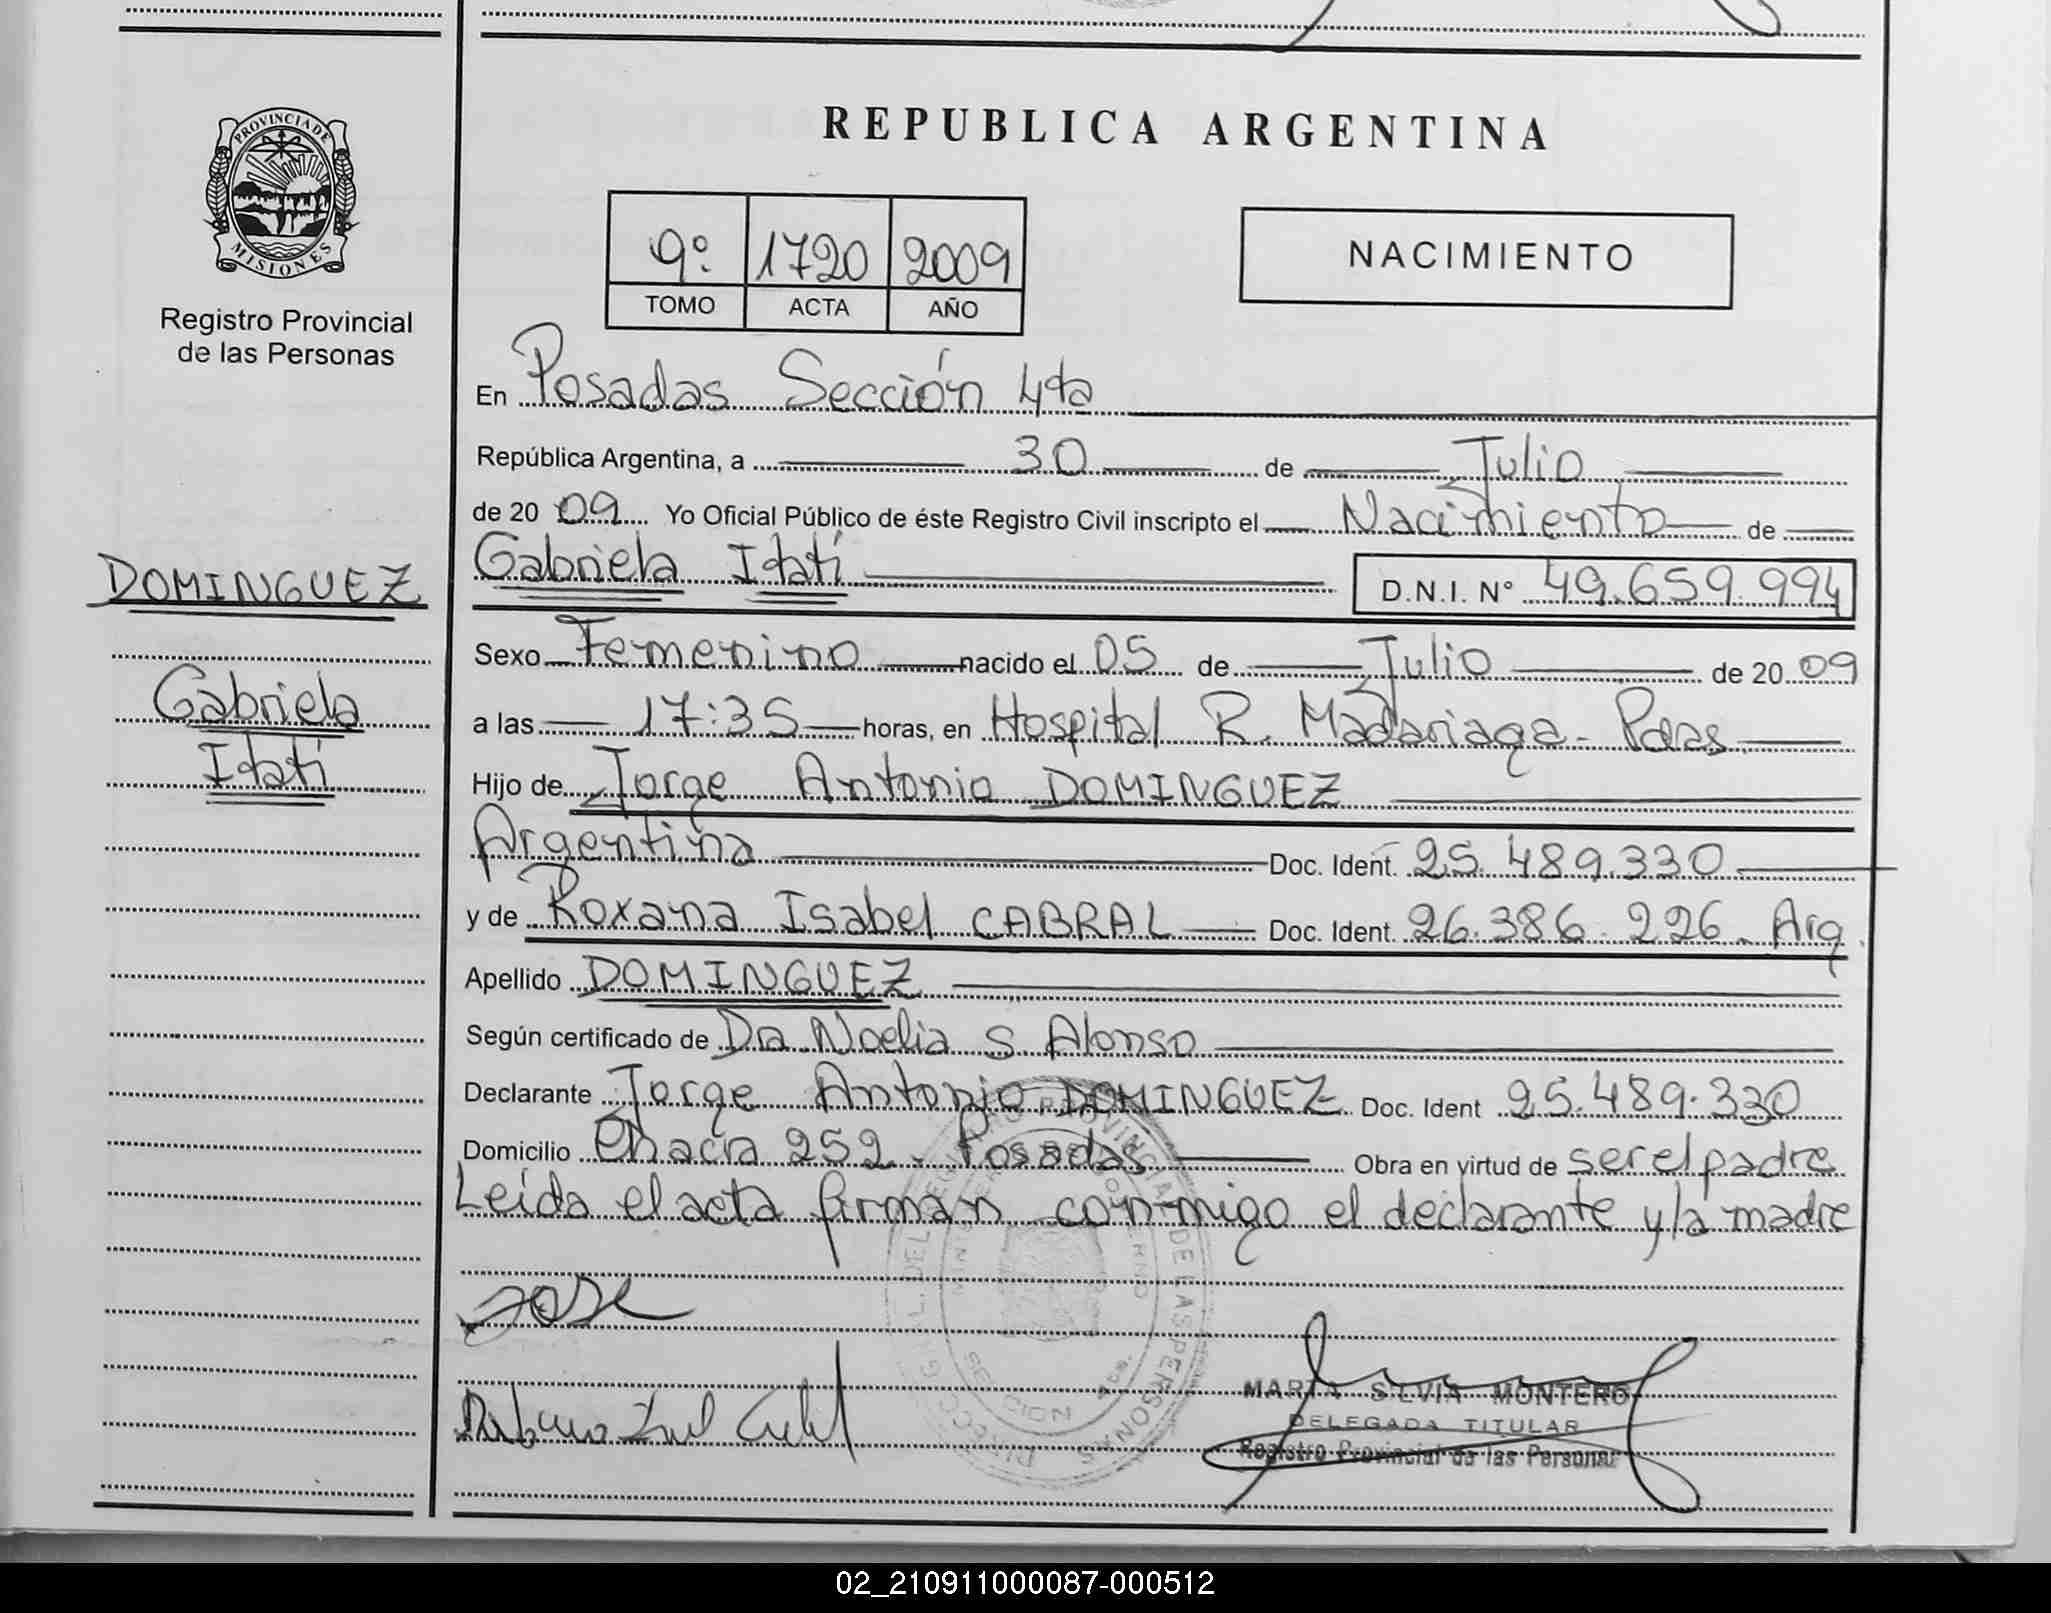 PROVINCIA DE
MISIONES
Registro Provincial
de las Personas
DOMINGUEZ
Gabriela
Itatí
REPUBLICA ARGENTINA
9º 1720 2009
TOMO ACTA AÑO
NACIMIENTO
En Posadas Sección 4ta
República Argentina, a 30 de Julio
de 20 09 Yo Oficial Público de éste Registro Civil inscripto el Nacimiento de
Gabriela Itatí D.N.I. Nº 49.659.994
Sexo Femenino nacido el 05 de Julio de 20 09
a las 17:35 horas, en Hospital R. Madariaga - Pdas.
Hijo de Jorge Antonio DOMINGUEZ
Argentina Doc. Ident. 25.489.330
y de Roxana Isabel CABRAL Doc. Ident. 26.386.226. Arg.
Apellido DOMINGUEZ
Según certificado de Dra Noelia S Alonso
Declarante Jorge Antonio DOMINGUEZ Doc. Ident 25.489.330
Domicilio Chacra 252 - Posadas Obra en virtud de ser el padre
Leída el acta firman conmigo el declarante y la madre
MARTA SILVIA MONTERO
DELEGADA TITULAR
Registro Provincial de las Personas
02_210911000087-000512